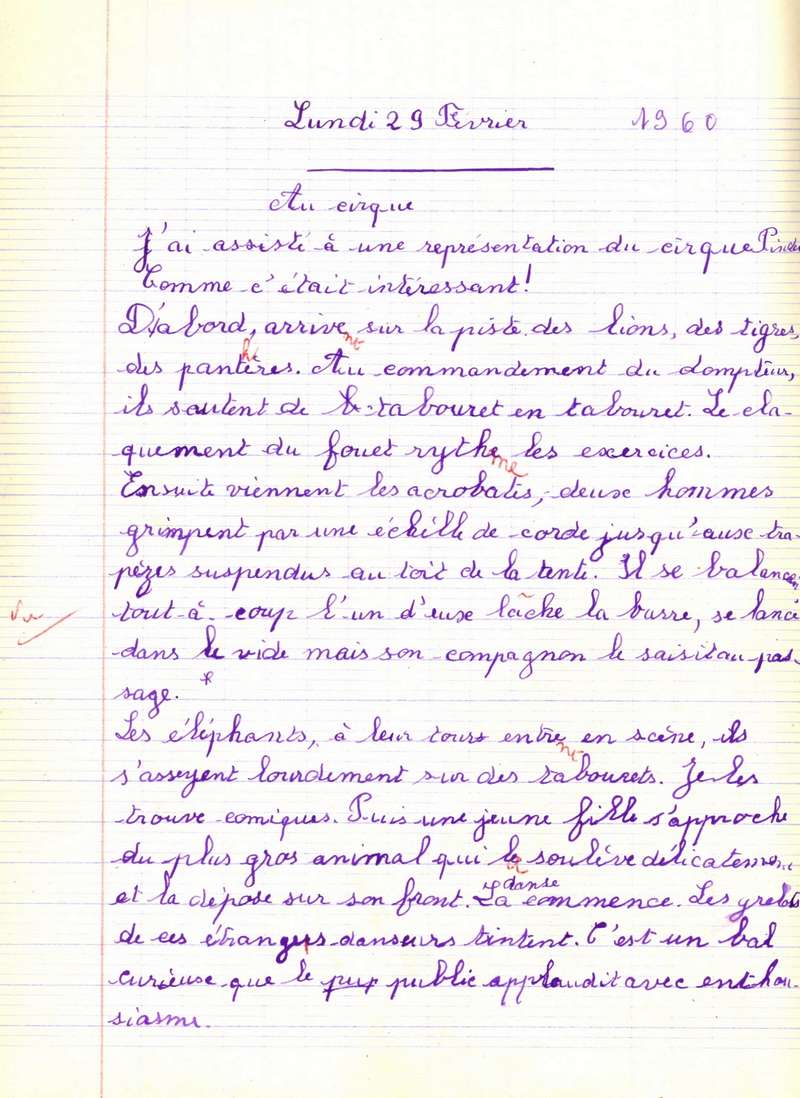 Lundi 29 Février 1960
Au cirque
J'ai assisté à une représentation du cirque Pinder
Comme c'était intéressant!
D'abord, arrivent sur la piste des lions, des tigres,
des panthères. Au commandement du dompteur,
ils sautent de tabouret en tabouret. Le cla-
quement du fouet rythme les exercices.
Ensuite viennent les acrobates, deux hommes
grimpent par une échelle de corde jusqu'aux tra-
pèzes suspendus au toit de la tente. Il se balancent
Vu
tout-à-coup l'un d'eux lâche la barre, se lance
dans le vide mais son compagnon le saisit au pas-
sage.
Les éléphants, à leur tours entrent en scène, ils
s'asseyent lourdement sur des tabourets. Je les
trouve comiques. Puis une jeune fille s'approche
du plus gros animal qui la soulève délicatement
et la dépose sur son front. La danse commence. Les grelots
de ces étranges danseurs tintent. C'est un bal
curieuse que le public applaudit avec enthou-
siasme.